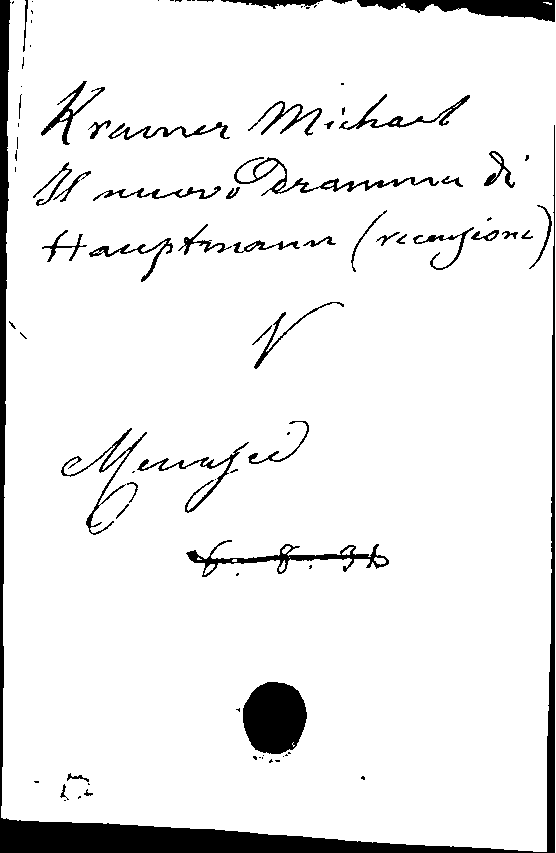 Kramer Michael
Il nuovo Dramma di
Hauptmann (recensione)
V
Menasci
6. 8. 36